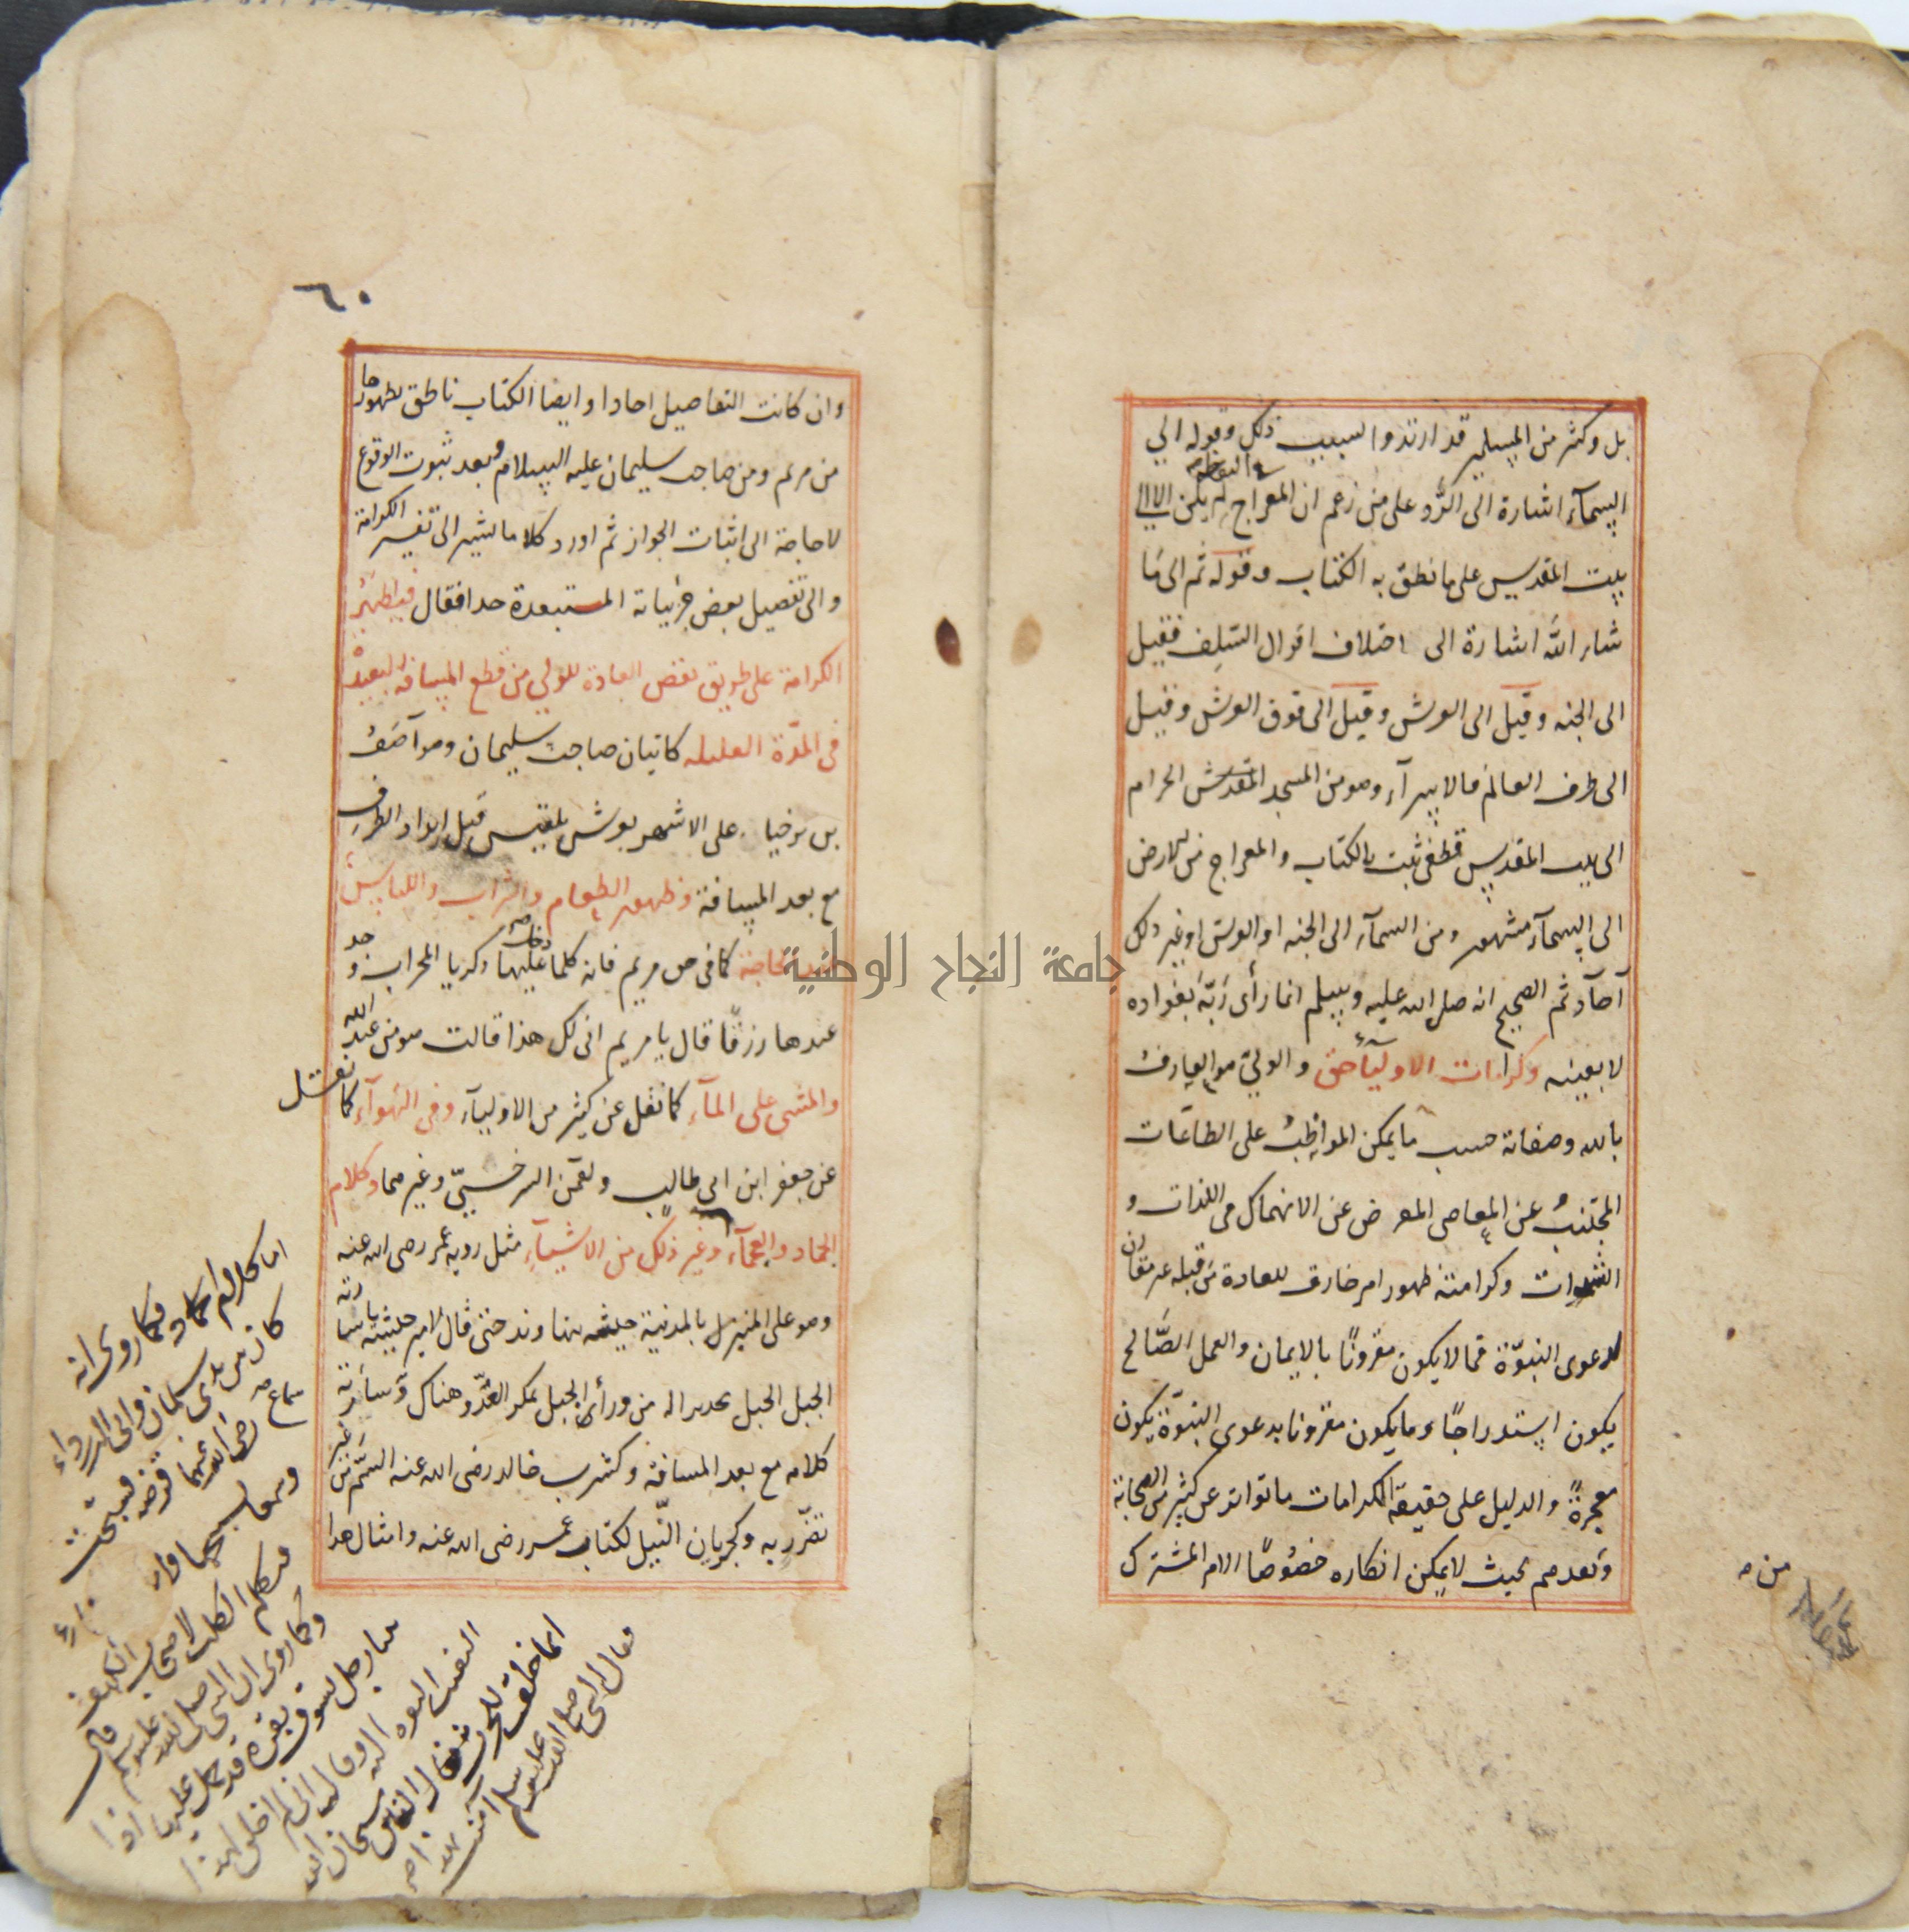 بل وكثير من المسلمين قد ارتدوا بسبب ذلك وقوله الي
السمآء اشارة الى الرّد على من زعم ان المعراج في اليقظة لم يكن الا الى
بيت المقدس على ما نطق به الكتاب وقوله ثم الى ما
شاء الله اشارة الى اختلاف اقوال السّلف فقيل
الى الجنه وقيل الى العرش وقيل الى فوق العرش وقيل
الى طرف العالم فالاسرآء وهو من المسجد الحرام
الى بيت المقدس قطعي ثبت بالكتاب والمعراج من الارض
الى السمآء مشهور ومن السمآء الى الجنه او العرش او غير ذلك
آحاد ثم الصحيح انه صلى الله عليه وسلم انما رأى ربّه بفواده
لا بعينه وكرامات الاوليآء حق والوليّ هو العارف
بالله وصفاته حسب ما يمكن المواظبُ على الطاعات
المجتنبُ عن المعاصى المعرض عن الانهماك فى اللذات و
الشهوات وكرامته ظهور امر خارق للعادة من قبله غير مقارن
لدعوى النبوّة فما لا يكون مقرونًا بالايمان والعمل الصّالح
يكون استدراجًا وما يكون مقرونا بدعوى النبوّة يكون
معجزةً والدليل على حقيقة الكرامات ما تواتر عن كثير من الصحابة
وبعدهم بحيث لا يمكن انكاره خصوصًا الامر المشترك
من ه
٦٠
وان كانت التفاصيل احادا وايضا الكتاب ناطق بظهورها
من مريم ومن صاحب سليمان عليه السلام وبعد ثبوت الوقوع
لا حاجة الى اثبات الجواز ثم اورد كلاما يشير الى تفسير الكرامة
والى تفصيل بعض جزئياته المستبعدة جدا فقال فيظهرُ
الكرامة على طريق نقض العادة للولي من قطع المسافة البعيدة
في المدّة القليله كاتيان صاحب سليمان وهو آصفُ
بن برخيا على الاشهر بعرش بلقيس قبل ارتداد الطرف
مع بعد المسافة وظهور الطعام والشراب واللباس
عند الحاجة كما في حق مريم فانه كلما دخل عليها زكريا المحراب وجد
عندها رزقًا قال يا مريم انى لك هذا قالت هو من عند الله
والمشى على المآء كما نقل عن كثير من الاوليآء وفى الهوآء كما نقل
عن جعفر ابن ابى طالب ولقمن السرخسيّ وغيرهما وكلام
الجماد والعجمآء وغير ذلك من الاشيآء مثل روية عمر رضى الله عنه
وهو على المنبر بالمدينة جيشه بنهاوند حتى قال لامير جيشه يا سارية
الجبل الجبل تحديرا له من ورآء الجبل لمكر العدّو هناك وسماع سارية
كلامه مع بعد المسافة وكشرب خالد رضى الله عنه السّم من غير
تضّرر به وكجريان النّيل لكتاب عمر رضى الله عنه وامثال هذا
اما كلام الجماد فكما روى انه
كان بين يدى سلمان وابى الدرداء
رضى الله عنهما قصعة فسبّحت
وسمعا تسبيحها واما
فتكلم الكلب لاصحاب الكهف
وكما روى ان النبى صلى الله عليه وسلم قال
بينا رجل يسوق بقرة قد حمل عليها اذا
التفت البقرة اليه وقالت انى لم اخلق لهذا
انما خلقت للحرث فقال الناس سبحان الله
فقال النبى صلى الله عليه وسلم آمنت بهذا
جامعة النجاح الوطنية